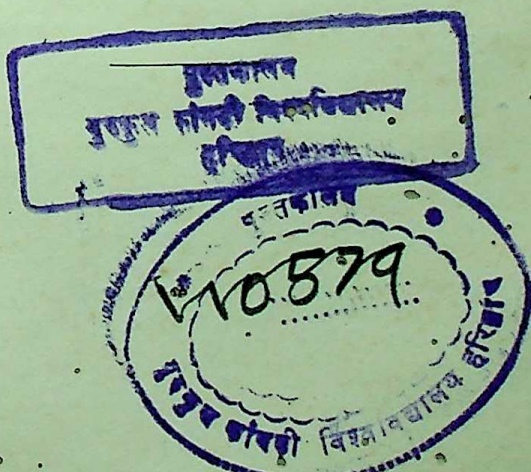 पुस्तकालय
गुरुकुल कांगड़ी विश्वविद्यालय
हरिद्वार
पुस्तकालय
110579
गुरुकुल कांगड़ी विश्वविद्यालय हरिद्वार